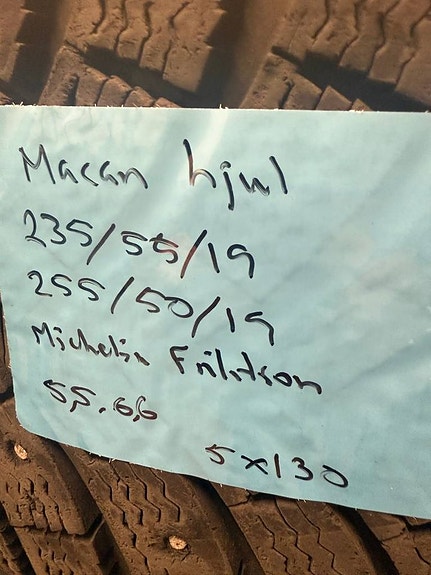 Macan hjul
235/55/19
255/50/19
Michelin Friktion
5,5.6,6
5x130